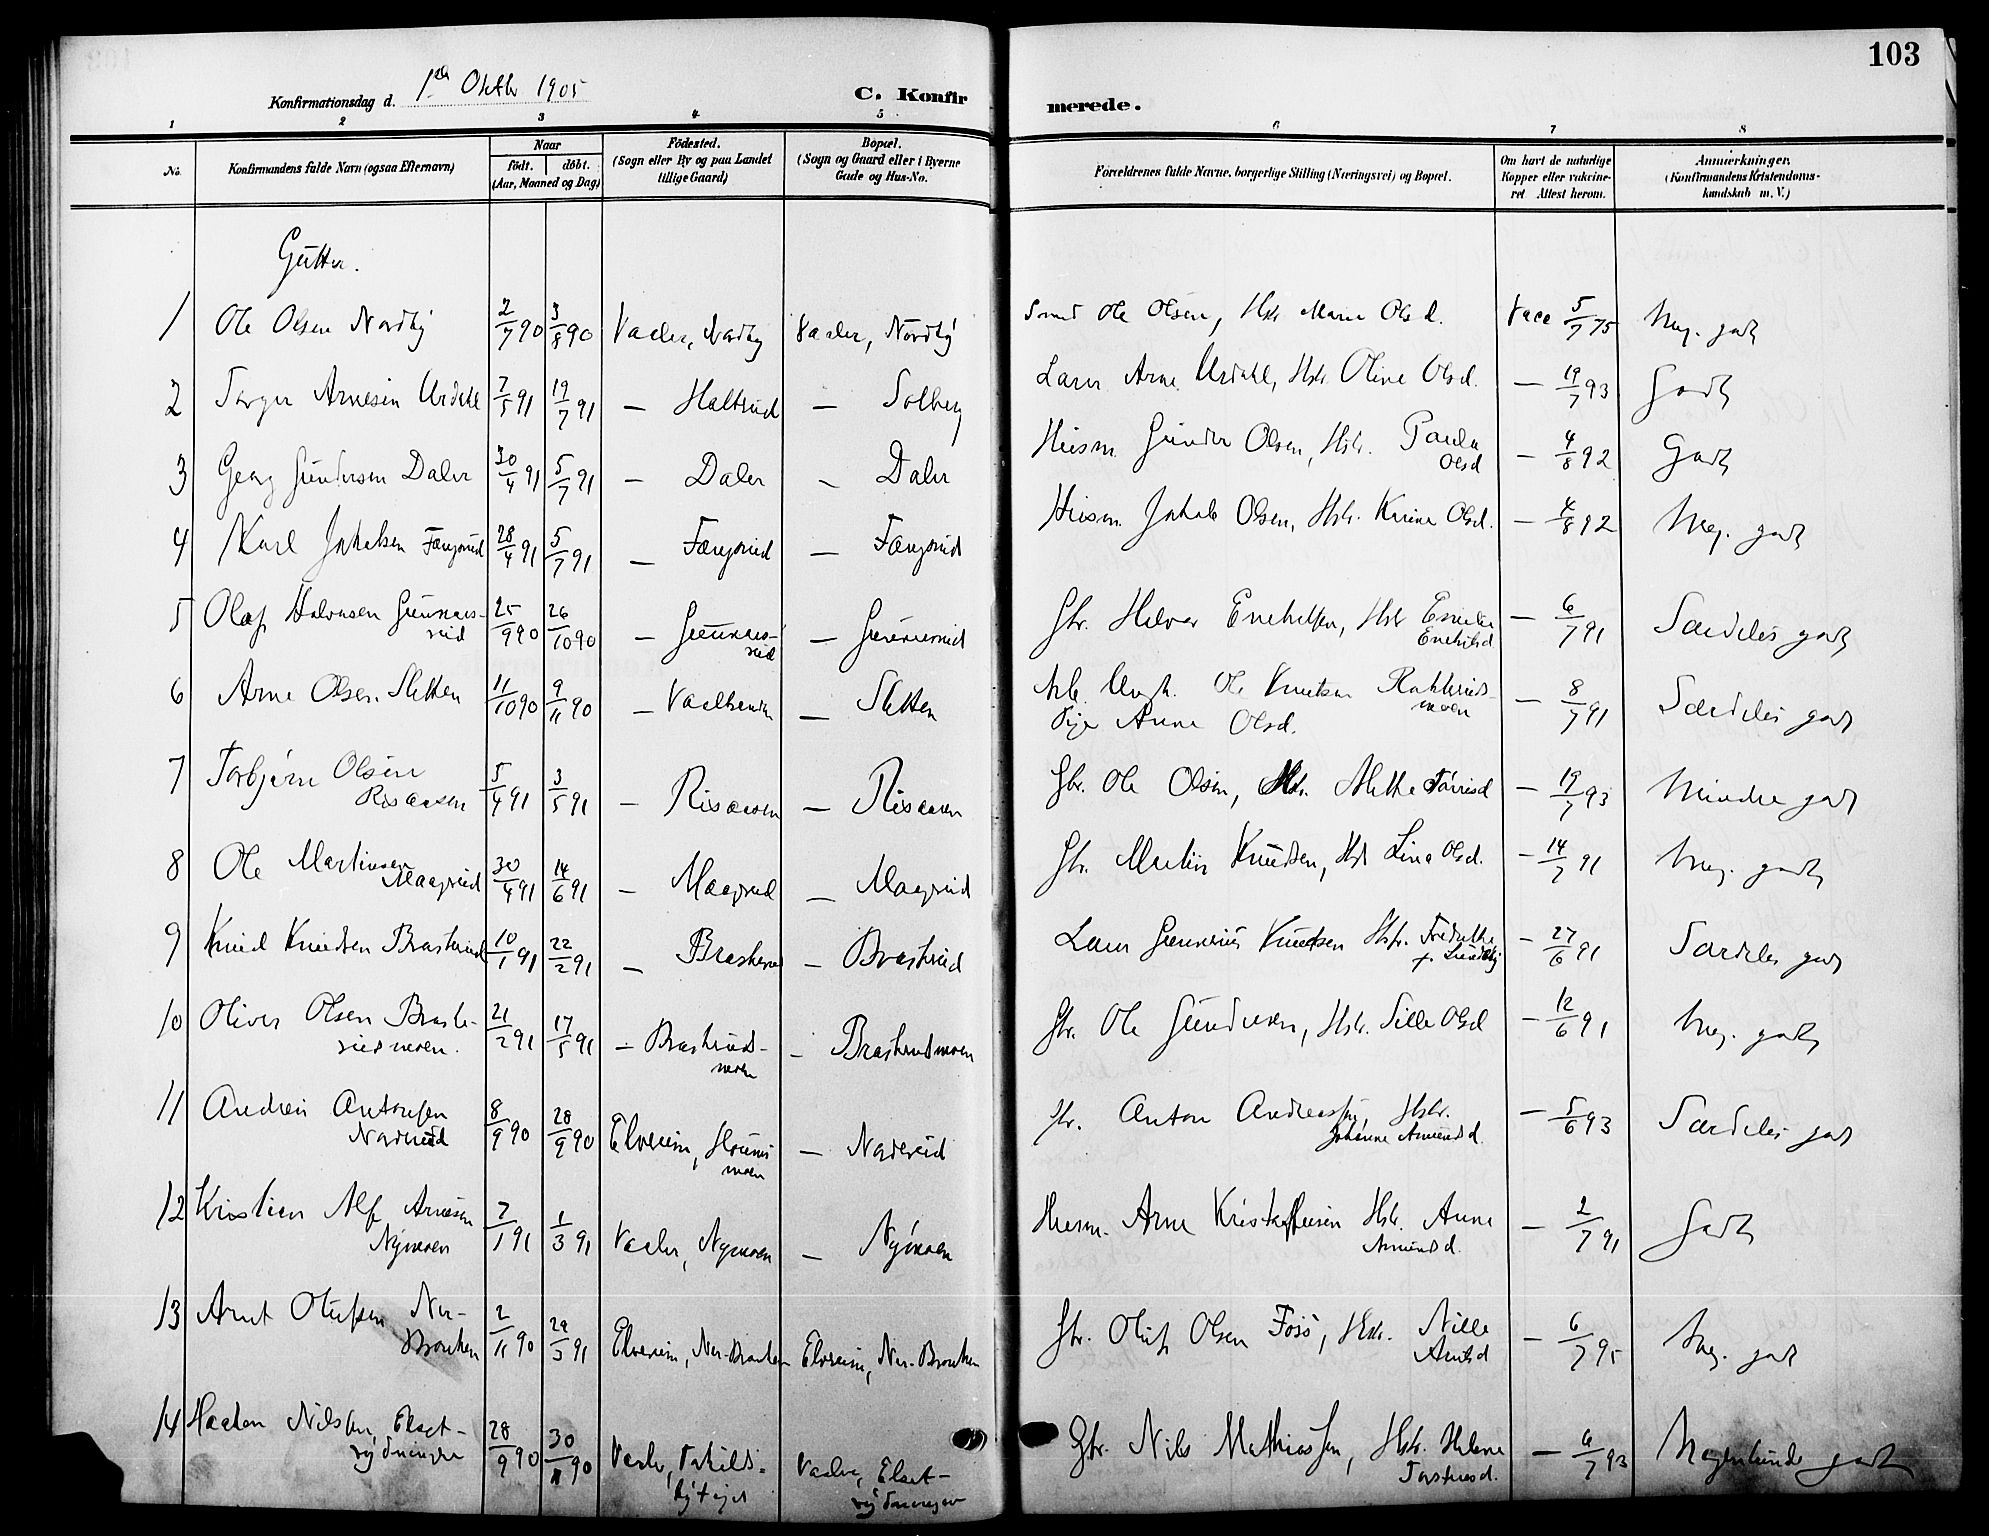 103
Konfirmationsdag d. 1ste Oktbr 1905
C. Konfir
merede.
1 2 3 4 5 6 7 8
No.
Konfirmandens fulde Navn (ogsaa Efternavn)
Naar
födt. döbt.
(Aar, Maaned og Dag)
Födested.
(Sogn eller By og paa Landet
tillige Gaard)
Bopæl.
(Sogn og Gaard eller i Byerne
Gade og Hus-No.
Forældrenes fulde Navne, borgerlige Stilling (Næringsvei) og Bopæl.
Om havt de naturlige
Kopper eller vakcine-
ret Attest herom.
Anmærkninger.
(Konfirmandens Kristendoms-
kundskab m. V.)
Gutter.
1 Ole Olsen Nordby 2/7 90 3/8 90 Vaaler, Nordby Vaaler, Nordby Ole Olsen, Hstr. Marie Olsd. Vacc 5/7 75 Meg. godt
2 Torger Arnesen Urdahl 7/5 91 19/7 91 — Haltrud — Solberg Arne Urdahl, Hstr. Oline Olsd. — 19/7 93 Godt
3 Georg Gundersen Daler 30/4 91 5/7 91 — Daler — Daler Husm. Gunder Olsen, Hstr. Paula
Olsd — 4/8 92 Godt
4 Karl Jakobsen Fængsrud 28/4 91 5/7 91 — Fængsrud — Fængsrud Husm. Jakob Olsen, Hstr. Karine Olsd. — 4/8 92 Meg. godt
5 Olaf Halvorsen Gunnars-
rud 25/9 90 26/10 90 — Gunnars-
rud — Gunnarsrud Gbr. Halvor Enehilsen, Hstr Emilie
Enehilsd — 6/7 91 Særdeles godt
6 Arne Olsen Sletten 11/10 90 9/11 90 — — Sletten Ole Knutsen
moen
Pige Anne Olsd. — 8/7 91 Særdeles godt
7 Torbjörn Olsen
Risaasen 5/4 91 3/5 91 — Risaasen — Risaasen Gbr. Ole Olsen, Hstr. Methe Tönnesd — 19/7 93 Mindre godt
8 Ole Martinsen
Maagrud 30/4 91 14/6 91 — Maagrud — Maagrud Gbr. Martin Knudsen, Hstr Lina Olsd. — 14/7 91 Meg. godt
9 Knud Knudsen Brasterud 10/1 91 22/2 91 — Brasterud — Brasterud Gunerius Knudsen Hstr. Fredrikke
f. — 27/6 91 Særdeles godt
10 Oliver Olsen Braste-
rudmoen. 21/2 91 17/5 91 — Brasterud-
moen — Brasterudmoen Gbr. Ole Gundersen, Hstr. Sille Olsd — 12/6 91 Meg. godt
11 Andreas Antonsen
Nordrud 8/9 90 28/9 90 Elverum,
moen — Nordrud Anton Andreassen, Hstr.
Johanne Amundsd. — 5/6 93 Særdeles godt
12 Kristian Alf Arnesen
Nymoen 7/1 91 1/3 91 Vaaler, Nymoen — Nymoen Husm. Arne Kristoffersen Hstr. Anne
Amundsd. — 2/7 91 Godt
13 Arnt Olufsen Ner-
Brouken 2/11 90 29/3 91 Elverum, Ner-Brouken Elverum, Ner-Brouken Gbr. Oluf Olsen Fossö, Hstr. Nille
Arntsd — 6/7 95 Meg. godt
14 Haakon Nilssen, Elset-
rydningen 28/9 90 30/11 90 Vaaler, Vaaler, Elset-
rydningen Gbr. Nils Mathiassen, Hstr. Helene
Torstensd. — 6/7 93 Nogenlunde godt